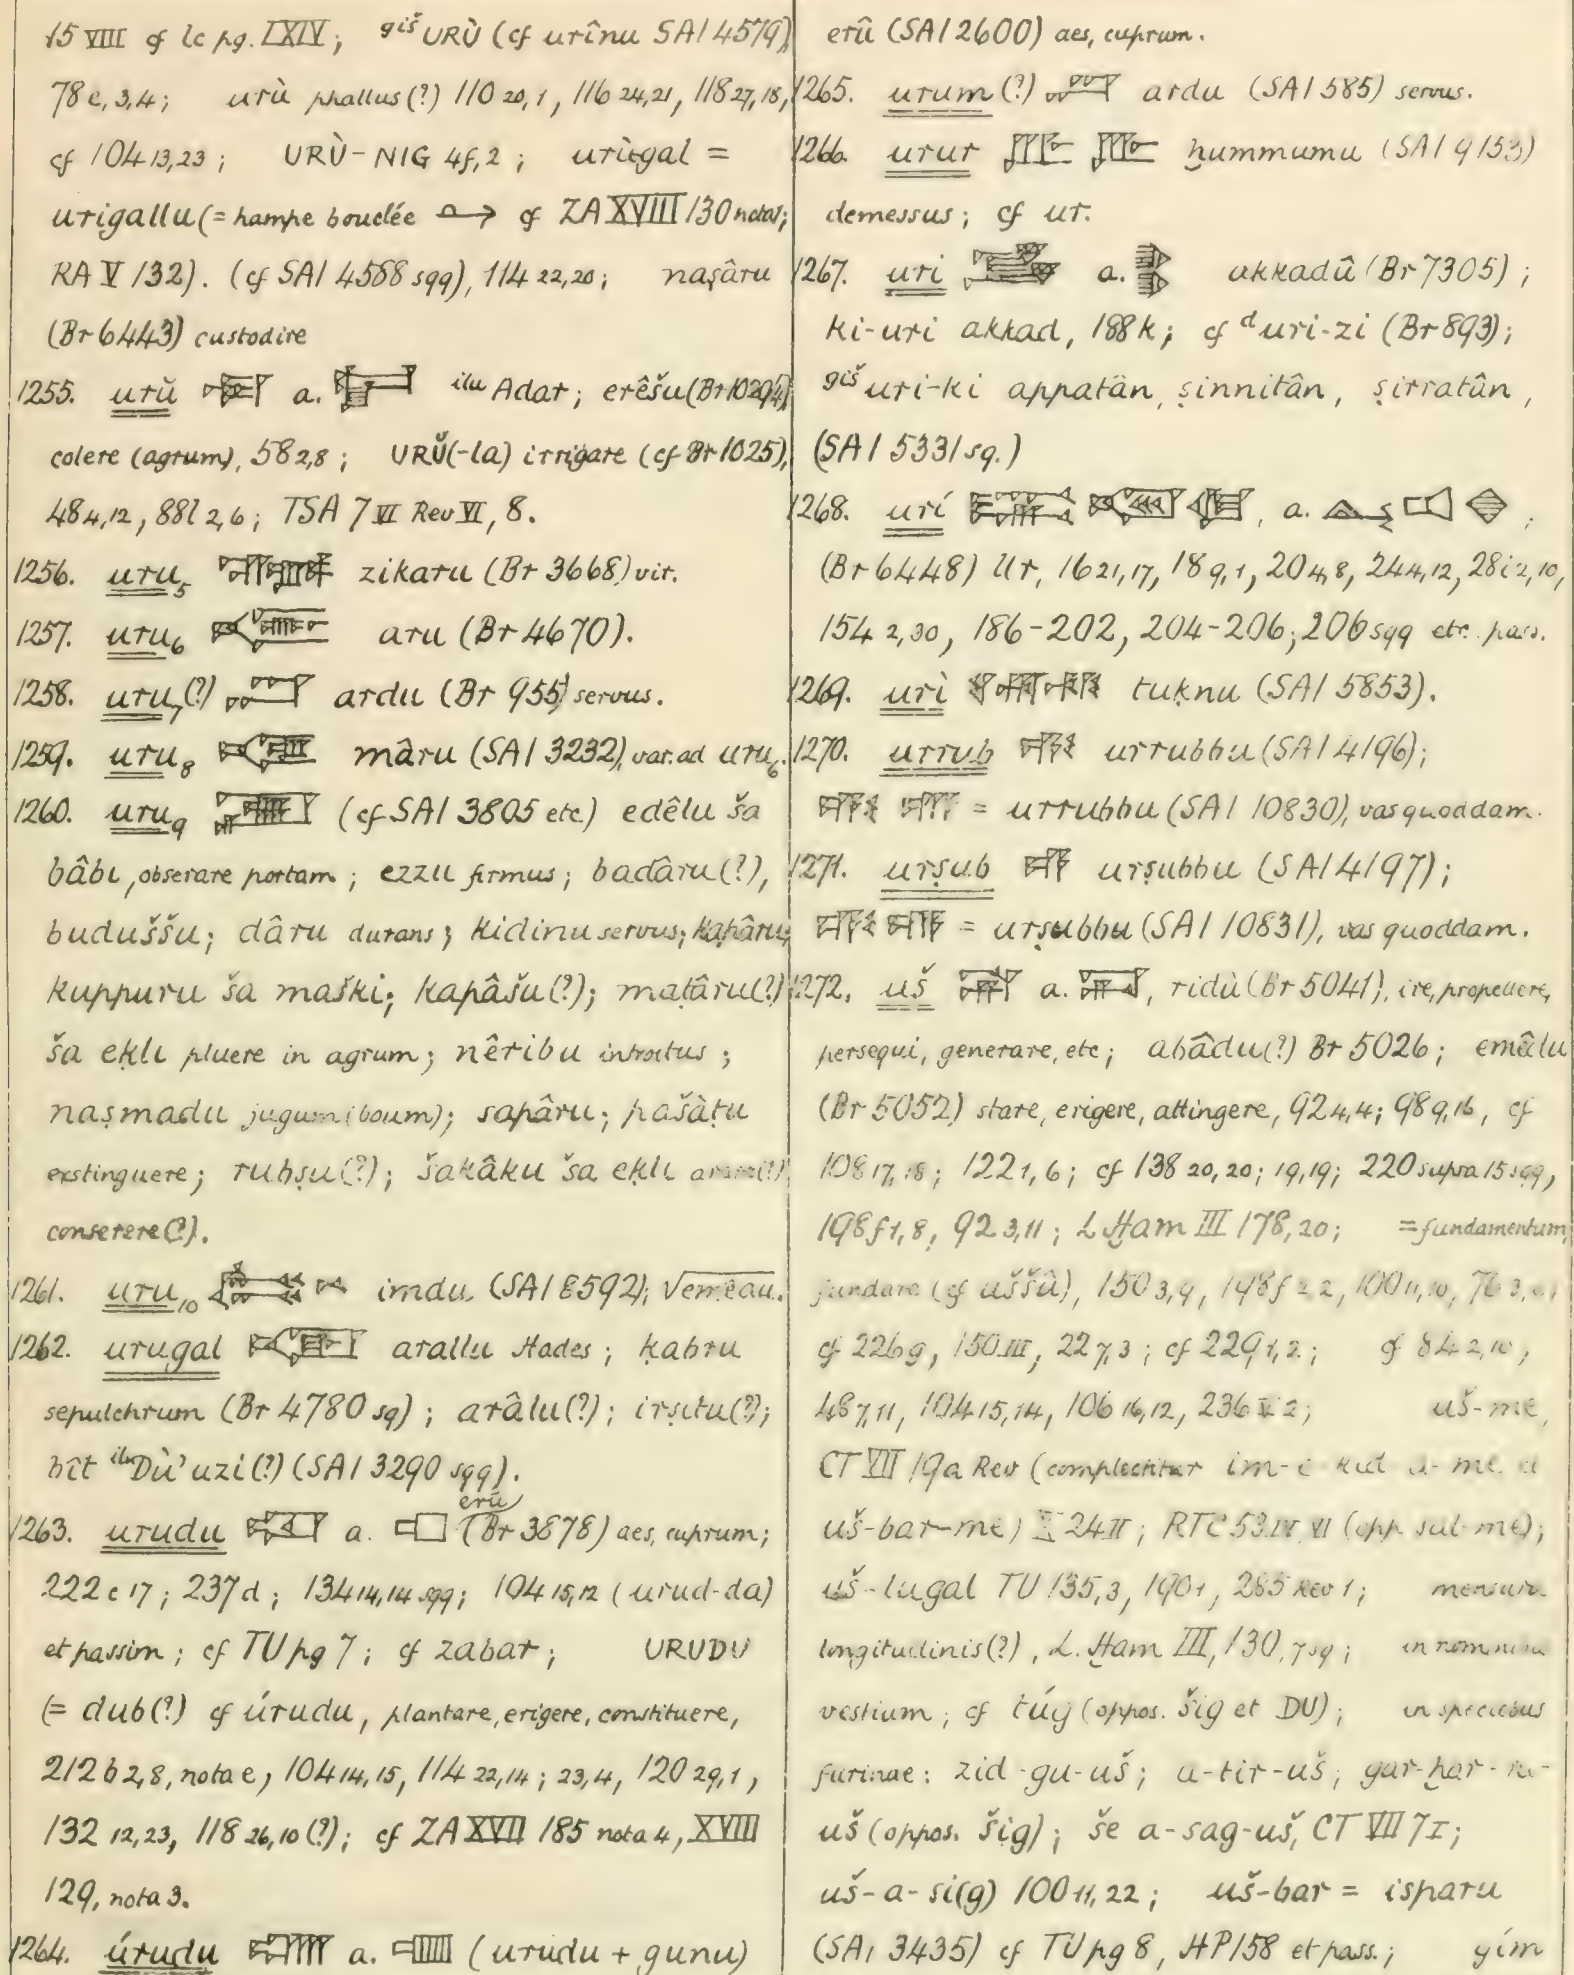 15 VIII cf lc pg. LXIV; giš URÙ (cf urînu SAI 4579)
78c, 3,4; urù phallus(?) 110 20,1, 116 24,21, 118 27,18,
cf 104 13,23; URÙ-NIG 4f,2; urì-gal =
urigallu (= hampe bouclée cf ZA XVIII 130 nota1;
RA V 132). (cf SAI 4588 sqq), 114 22,20; naṣâru
(Br 6443) custodire
1255. urŭ a. ilu Adar; erêšu (Br 10294)
colere (agrum), 58 2,8; URŬ(-la) irrigare (cf Br 1025),
48 4,12, 88l 2,6; TSA 7 VI Rev VI, 8.
1256. uru5 zikaru (Br 3668) vir.
1257. uru6 aru (Br 4670).
1258. uru7(?) ardu (Br 955) servus.
1259. uru8 mâru (SAI 3232), var. ad uru6.
1260. uru9 (cf SAI 3805 etc) edêlu ša
bâbi, obserare portam; ezzu firmus; badâru(?),
buduššu; dâru durans; kidinu servus; kapâru;
kuppuru ša maški; kapâšu(?); maṭâru(?)
ša eḳli pluere in agrum; nêribu introitus;
naṣmadu jugum (boum); sapâru; pašâṭu
exstinguere; rubṣu(?); šakâku ša eḳli
conserere(?).
1261. uru10 imdu (SAI 8592); √emêdu.
1262. urugal arallu Hades; ḳabru
sepulchrum (Br 4780 sq); arâlu(?); irṣitu(?);
bît ilu Dù'uzi(?) (SAI 3290 sqq).
1263. urudu a. erû (Br 3878) aes, cuprum;
222c 17; 237d; 134 14,14 sqq; 104 15,12 (urud-da)
et passim; cf TU pg 7; cf zabar; URUDU
(= dub(?) cf úrudu, plantare, erigere, constituere,
212 b 2,8, nota e, 104 14,15, 114 22,14; 23,4, 120 29,1,
132 12,23, 118 26,10(?); cf ZA XVII 185 nota 4, XVIII
129, nota 3.
1264. úrudu a. (urudu + gunu)
erû (SAI 2600) aes, cuprum.
1265. urum(?) ardu (SAI 585) servus.
1266. urur ḫummumu (SAI 9153)
demessus; cf ur.
1267. uri a. akkadû (Br 7305);
ki-uri akkad, 188k; cf d uri-zi (Br 893);
giš uri-ki appatân, ṣinnitân, ṣirratân,
(SAI 5331 sq.)
1268. urí a.
(Br 6448) Ur, 16 21,17, 18 9,1, 20 4,8, 24 4,12, 28i 2,10,
154 2,30, 186-202, 204-206; 206 sqq etc. pass.
1269. urì tuḳnu (SAI 5853).
1270. urrub urrubbu (SAI 4196);
= urrubbu (SAI 10830), vas quoddam.
1271. urṣub urṣubbu (SAI 4197);
= urṣubbu (SAI 10831), vas quoddam.
1272. uš a. ridù (Br 5041), ire, propellere,
persequi, generare, etc; abâdu(?) Br 5026; emêdu
(Br 5052) stare, erigere, attingere, 92 4,4; 98 9,16, cf
108 17,18; 122 1,6; cf 138 20,20; 19,19; 220 supra 15 sqq,
198 f1,8, 92 3,11; L Ḫam III 178,20; = fundamentum,
fundare (cf uššû), 150 3,9, 148f 2 2, 100 11,10, 76 3,
cf 226g, 150 III, 22 7,3; cf 229 1,2; cf 84 2,10,
48 7,11, 104 15,14, 106 16,12, 236 V 2; uš-me,
CT VII 19a Rev (complectitur
uš-bar-me) X 24 II; RTC 53 IV VI (opp sal-me);
uš-lugal TU 135,3, 190 1, 285 Rev 1; mensura
longitudinis(?), L. Ḫam III, 130,7 sq; in nomine
vestium; cf túg (oppos. šig et DU); in speciebus
farinae: zid-gu-uš; a-tir-uš, gar-ḫar-ra-
uš (oppos. šig); še a-sag-uš, CT VII 7 I;
uš-a-si(g) 100 11,22; uš-bar = isparu
(SAI 3435) cf TU pg 8, HP 158 et pass.; gim